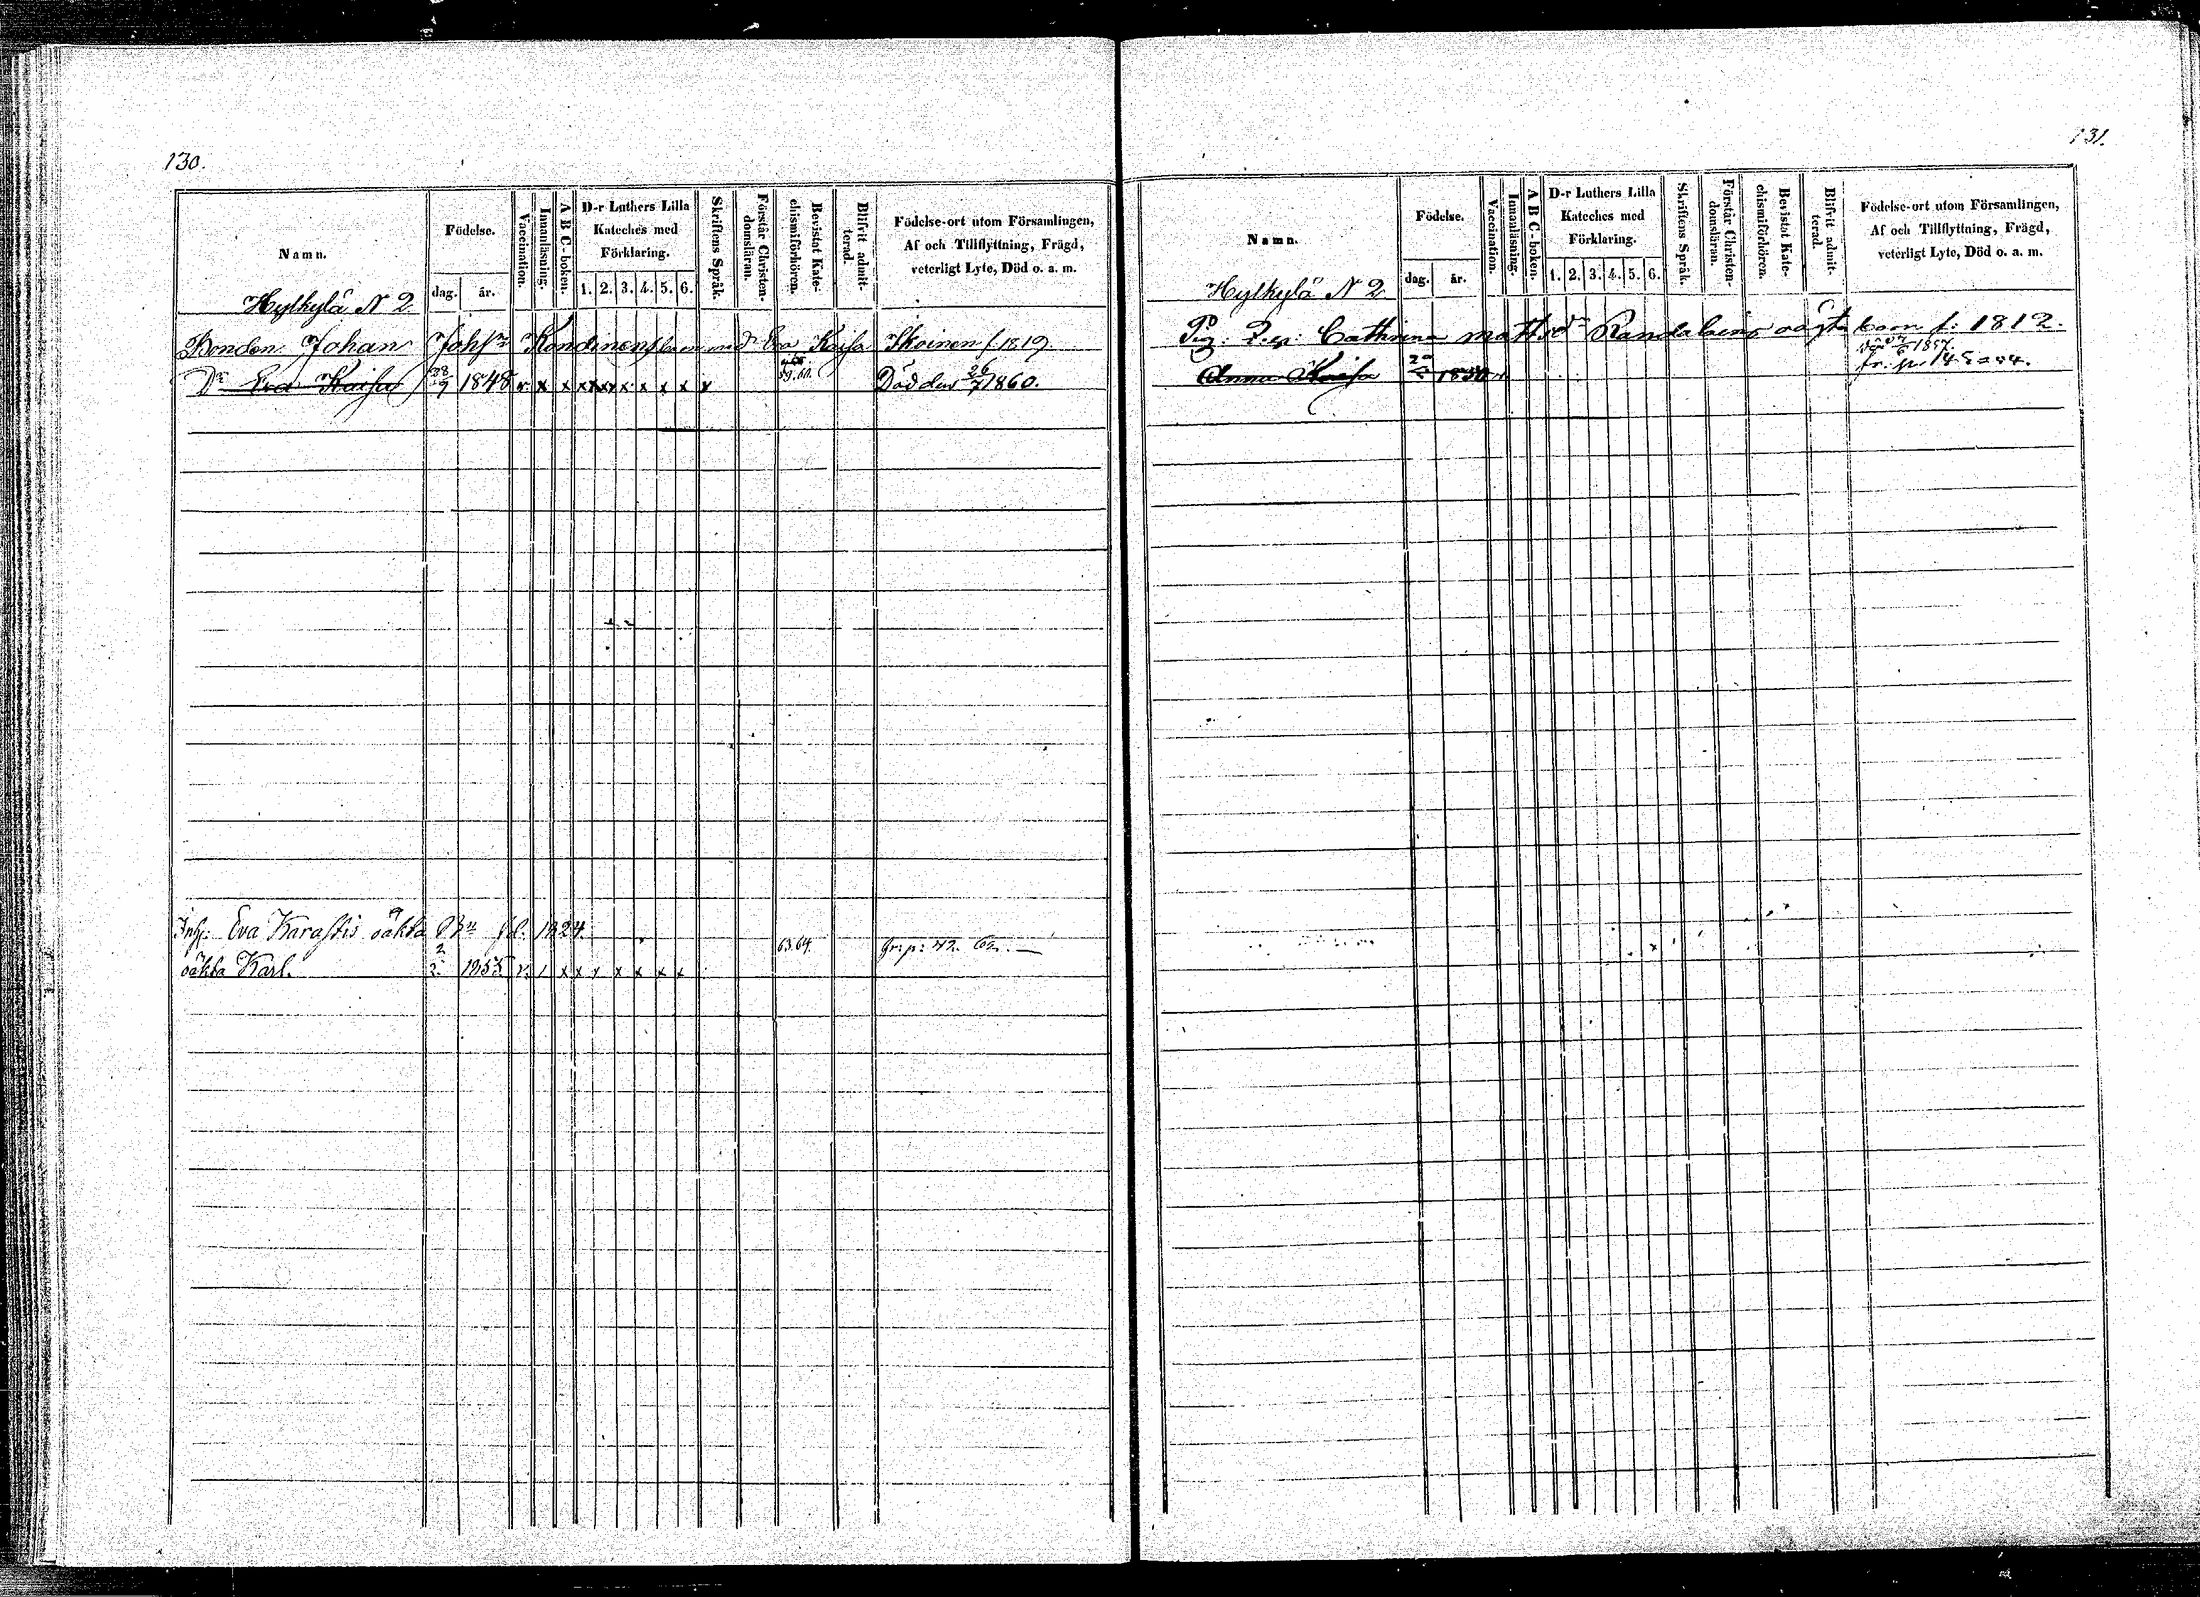 130.
Namn.
Födelse.
dag. år.
Vaccination.
Innanläsning.
A B C-boken.
D-r Luthers Lilla
Kateches med
Förklaring.
1. 2. 3. 4. 5. 6.
Skriftens Språk.
Förstår Christen-
domsläran.
Bevistat Kate-
chismiförhören.
Blifvit admit-
terad.
Födelse-ort utom Församlingen,
Af och Tillflyttning, Frägd,
veterligt Lyte, Död o. a. m.
Hylkylä N 2.
Bonden Johan Johsn Kondinens barn med Eva Kaisa Ikoinen f. 1819.
Dr Eva Kaisa 28/9 1848 v x x x x x x x x x x 59.60. Död den 26/7 1860.
Inh: Eva Karastis oäkta Bn fd. 1824.
oäkta Karl. 2/2 1855 v. / x x x x x x x 63.64. fr: p: 42. 62.
131.
Namn.
Födelse.
dag. år.
Vaccination.
Innanläsning.
A B C-boken.
D-r Luthers Lilla
Kateches med
Förklaring.
1. 2. 3. 4. 5. 6.
Skriftens Språk.
Förstår Christen-
domsläran.
Bevistat Kate-
chismiförhören.
Blifvit admit-
terad.
Födelse-ort utom Församlingen,
Af och Tillflyttning, Frägd,
veterligt Lyte, Död o. a. m.
Hylkylä N 2
Pig: Cathrina Mattsdr Randalains oägta barn f: 1812.
Anna Kaisa 1850 v. 1857.
fr. p. 145 a 44.